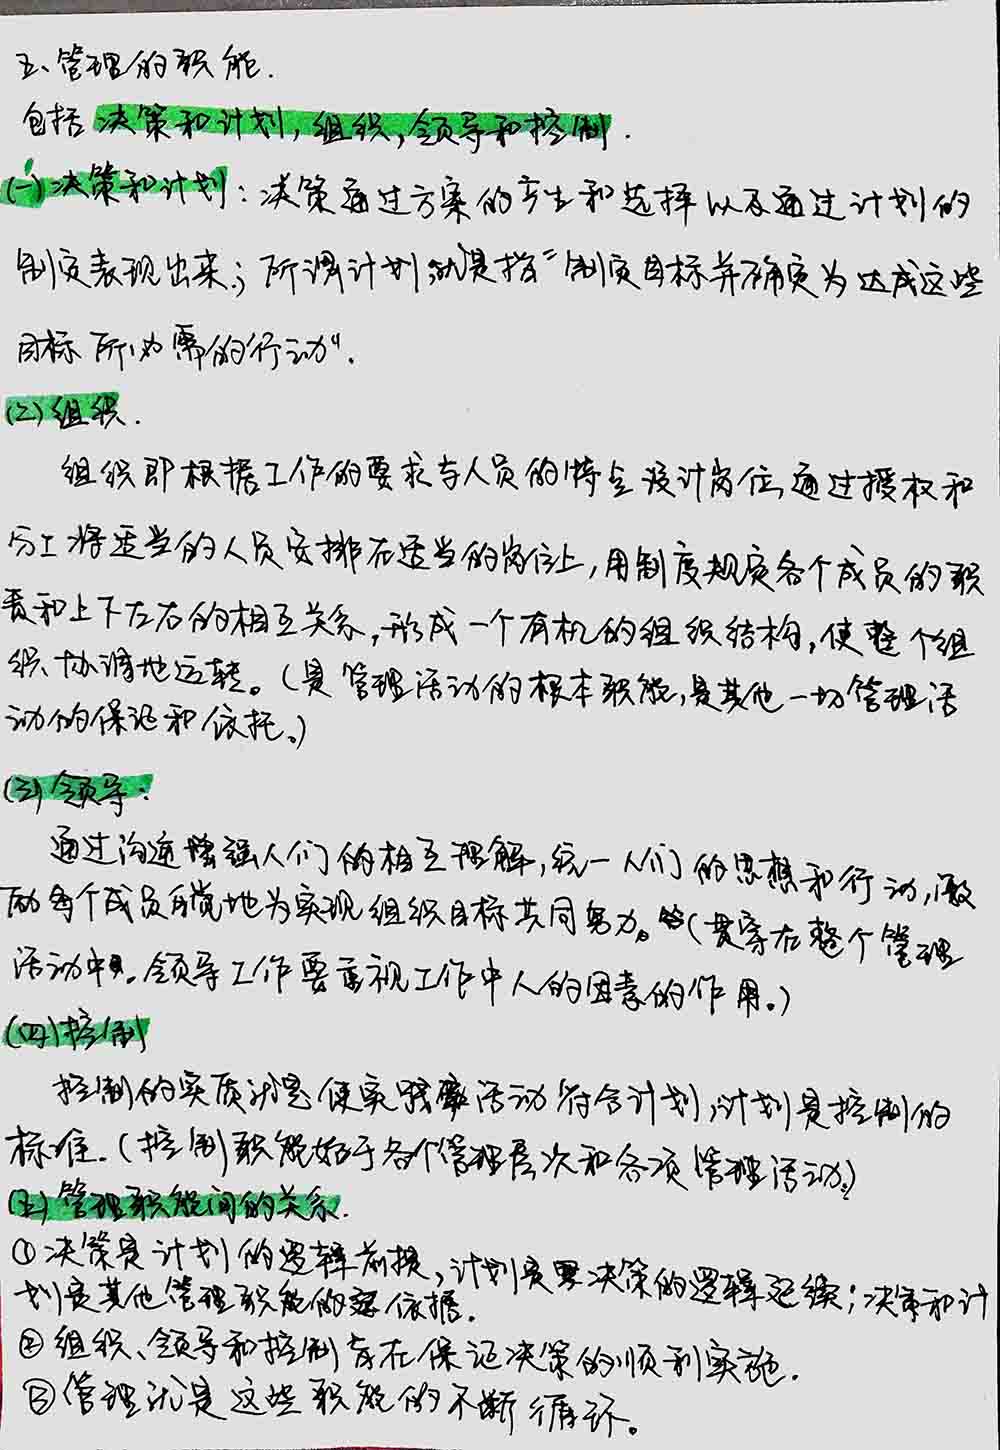 五、管理的职能.
包括决策和计划,组织,领导和控制.
(一)决策和计划:决策通过方案的产生和选择以及通过计划的
制定表现出来;所谓计划,就是指"制定目标并确定为达成这些
目标所必需的行动".
(二)组织.
组织即根据工作的要求与人员的特点设计岗位,通过授权和
分工将适当的人员安排在适当的岗位上,用制度规定各个成员的职
责和上下左右的相互关系,形成一个有机的组织结构,使整个组
织协调地运转。(是管理活动的根本职能,是其他一切管理活
动的保证和依托。)
(三)领导:
通过沟通增强人们的相互理解,统一人们的思想和行动,激
励每个成员自觉地为实现组织目标共同努力。(贯穿在整个管理
活动中。领导工作要重视工作中人的因素的作用。)
(四)控制
控制的实质就是使实践活动符合计划,计划是控制的
标准.(控制职能始于各个管理层次和各项管理活动。)
(五)管理职能间的关系.
①决策是计划的逻辑前提,计划是决策的逻辑延续;决策和计
划是其他管理职能的依据.
②组织、领导和控制旨在保证决策的顺利实施.
③管理就是这些职能的不断循环。